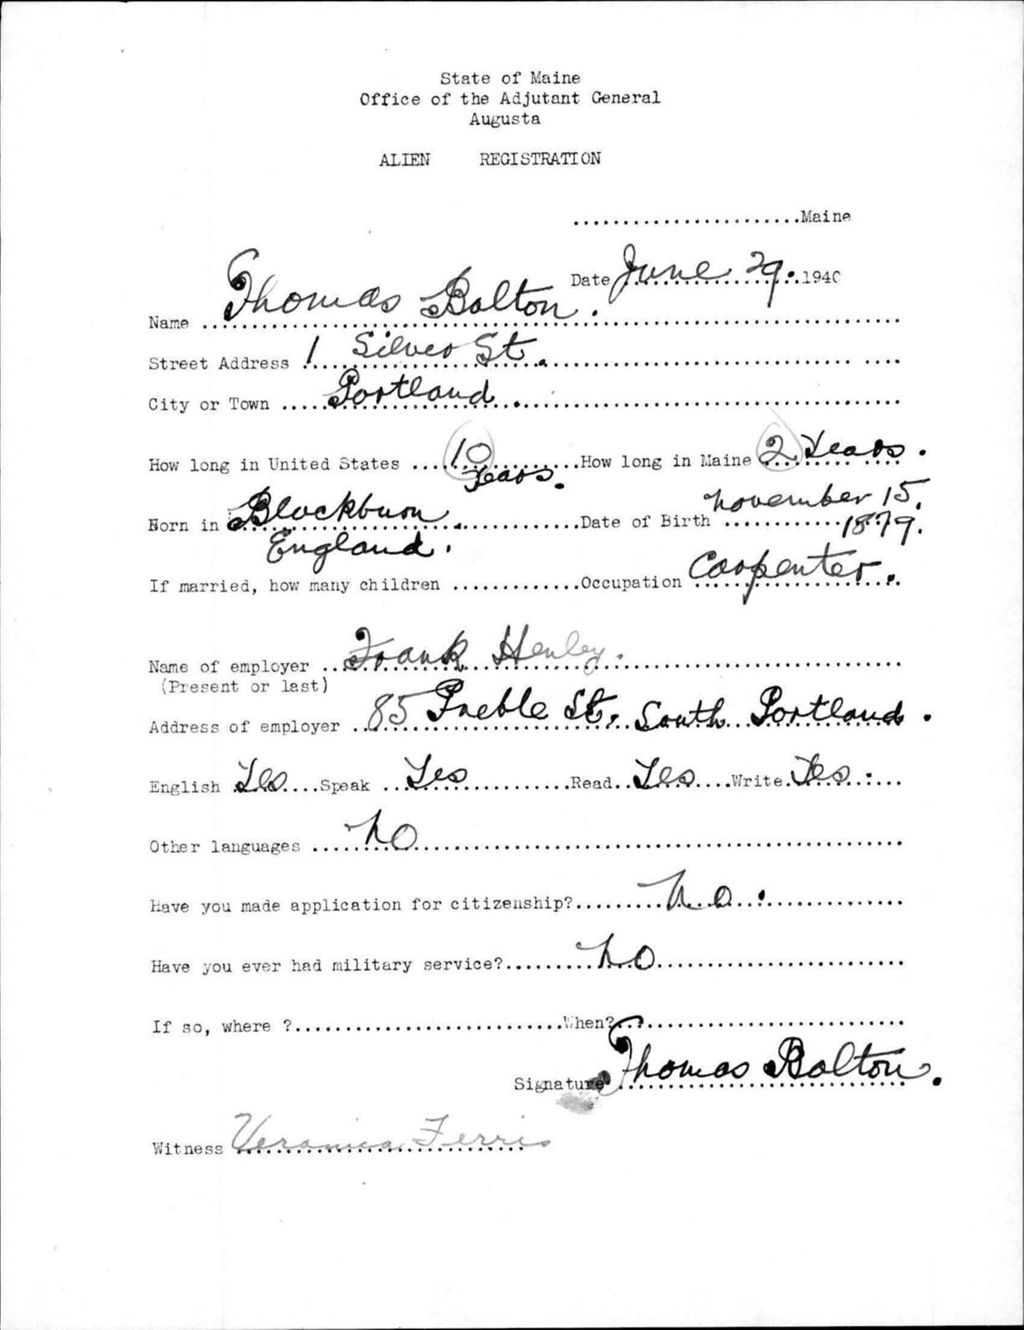 State of Maine
Office of the Adjutant General
Augusta
ALIEN REGISTRATION
.......................Maine
Date June 29. 1940
Name Thomas Bolton.
Street Address 1 Silver St.
City or Town Portland.
How long in United States 10 Years. How long in Maine 2 Years.
Born in Blackburn England. Date of Birth November 15, 1879.
If married, how many children .............Occupation Carpenter.
Name of employer Frank Henley.
(Present or last)
Address of employer 85 Preble St, South Portland.
English Yes Speak Yes Read Yes Write Yes.
Other languages No
Have you made application for citizenship? No.
Have you ever had military service? No
If so, where ?...........................When?...........................
Signature Thomas Bolton.
Witness Veronica Ferris